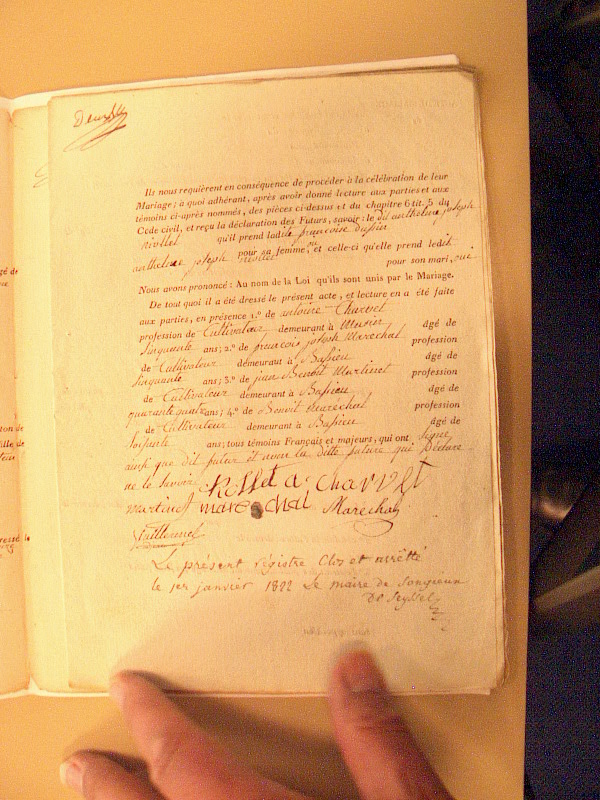 Deux
Ils nous requièrent en conséquence de procéder à la célébration de leur
Mariage; à quoi adhérant, après avoir donné lecture aux parties et aux
témoins ci-après nommés, des pièces ci-dessus et du chapitre 6 tit. 5 du
Code civil, et reçu la déclaration des Futurs, savoir: le dit anthelme joseph
nivollet qu'il prend ladite francoise dufin
pour sa femme, oui et celle-ci qu'elle prend ledit
anthelme joseph nivollet pour son mari, oui
Nous avons prononcé: Au nom de la Loi qu'ils sont unis par le Mariage.
De tout quoi il a été dressé le présent acte, et lecture en a été faite
aux parties, en présence 1.º de antoine Charvet
profession de Cultivateur demeurant à âgé de
Sinquante ans; 2.º de francois joseph Marechal profession
de Cultivateur demeurant à Bassieu âgé de
sinquante ans; 3.º de jean Benoit Martinet profession
de Cultivateur demeurant à Bassieu âgé de
quarante quatre ans; 4.º de Benoit Marechal profession
de Cultivateur demeurant à Bassieu âgé de
soisante ans; tous témoins Français et majeurs, qui ont signé
ainsi que dit futur et non la ditte future qui declare
ne le savoir
a charvet
martinet marechal Marechal
Le présent régistre Clos et arrêtté
le 1er janvier 1822 Le maire de Songieux
De Seyssel